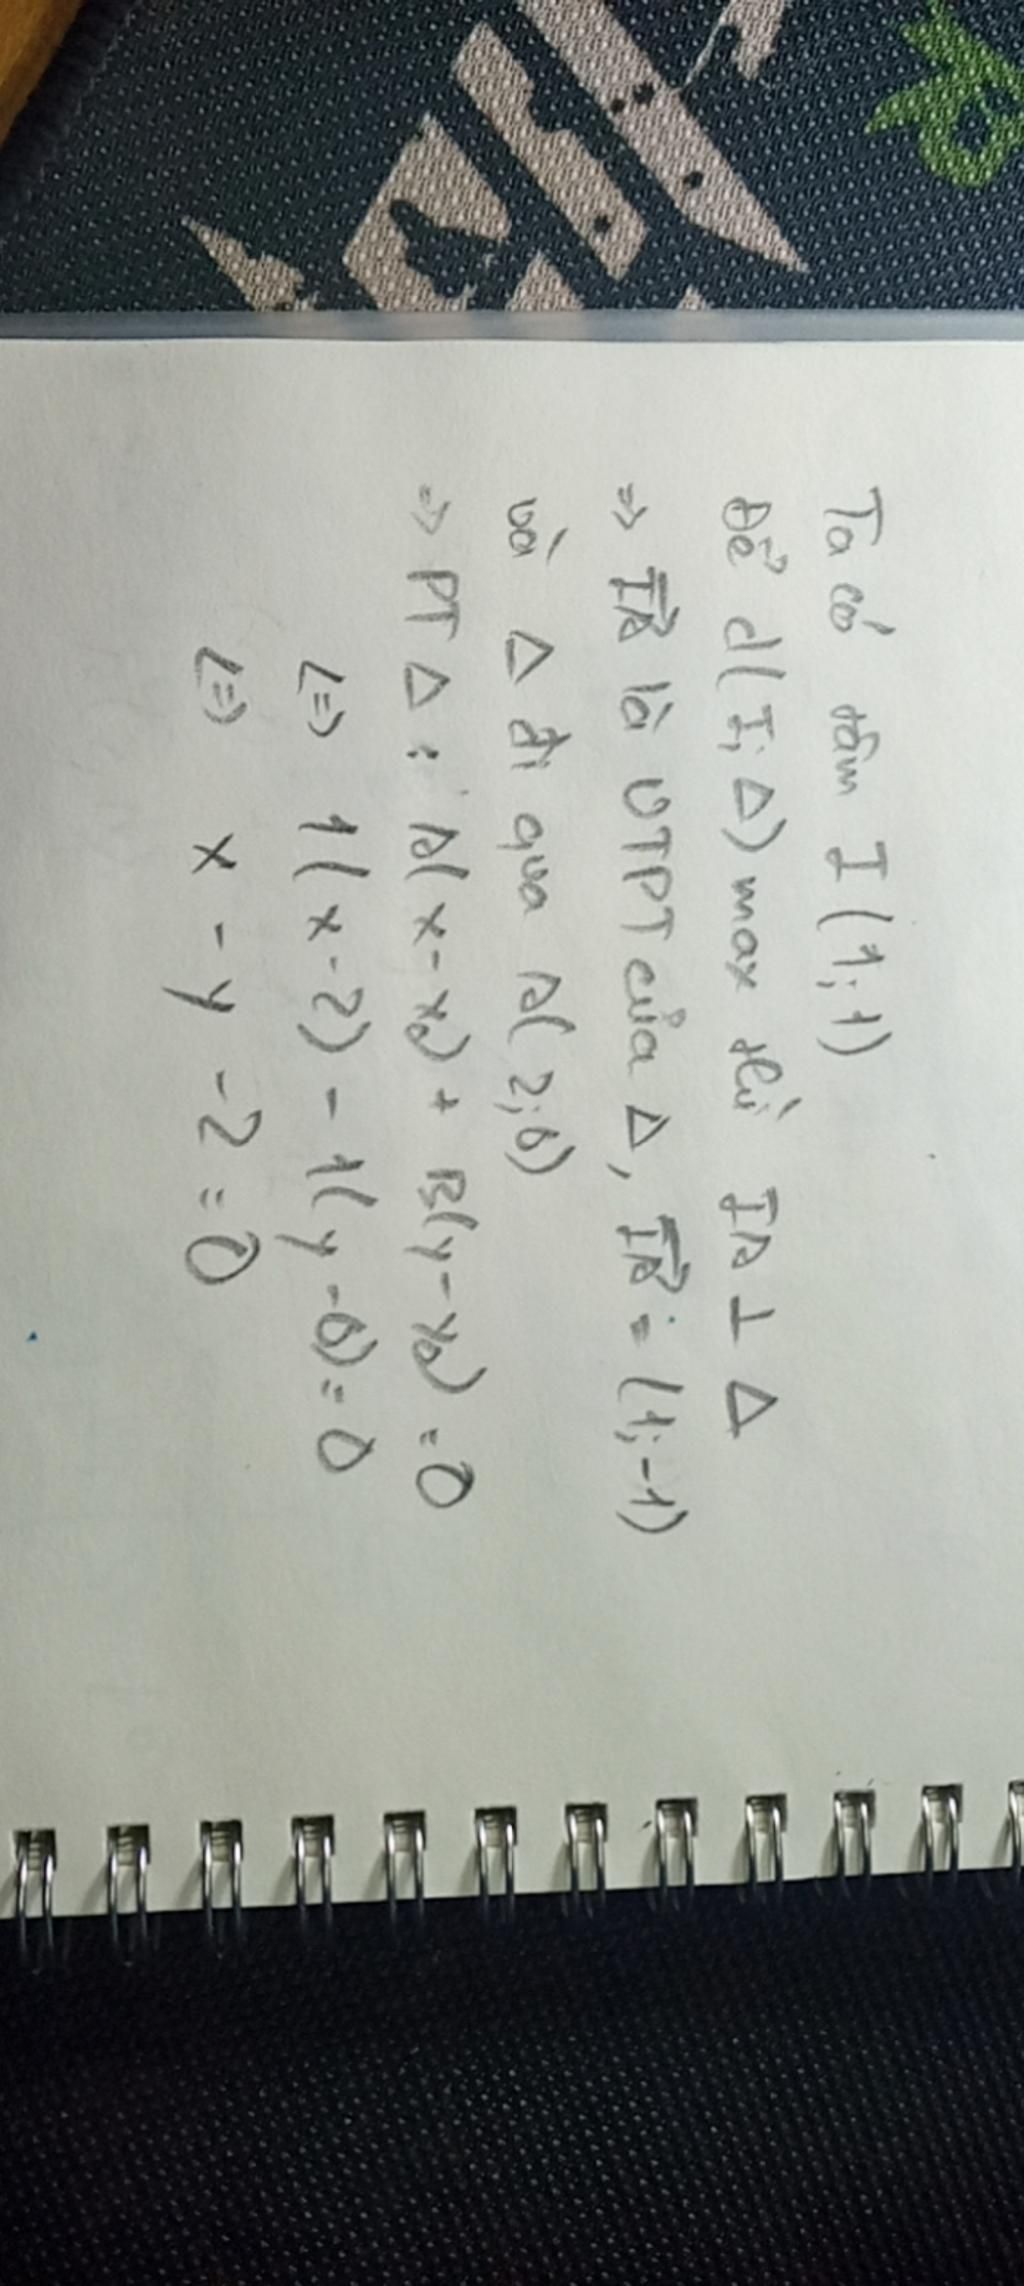 Ta có tâm I(1;1)
Để d(I;Δ) max thì IA ⊥ Δ
=> IA là VTPT của Δ, IA = (1;-1)
và Δ đi qua A(2;0)
=> PT Δ : A(x-x₀) + B(y-y₀) = 0
<=> 1(x-2) - 1(y-0) = 0
<=> x - y - 2 = 0